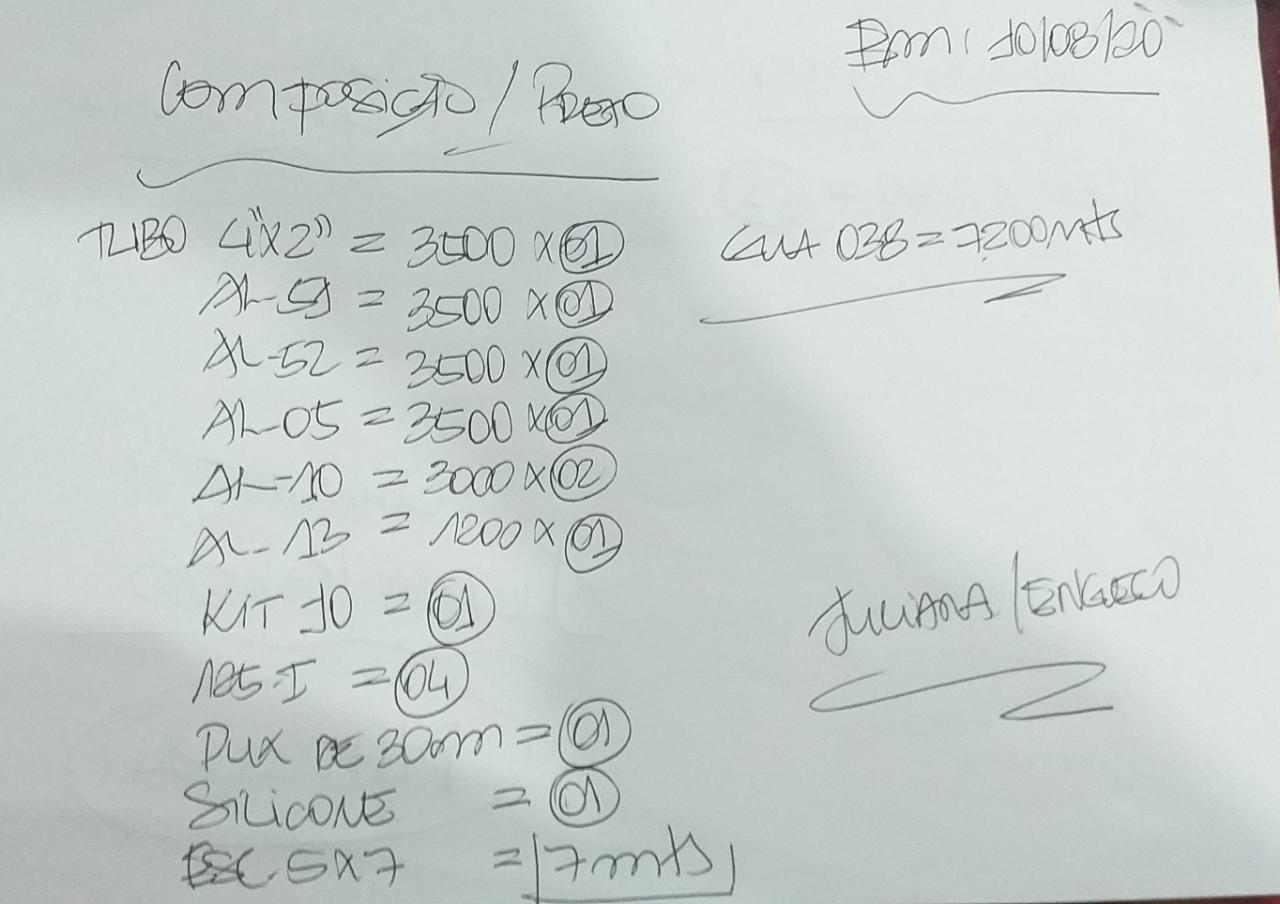 Em: 10/08/20
Composição / Preço
TUBO 4"x2" = 3500 x 01
GUA 038 = 7200mts
AL-51 = 3500 x 01
AL-52 = 3500 x 01
AL-05 = 3500 x 01
AL-10 = 3000 x 02
AL-13 = 1200 x 01
KIT 10 = 01
JULIANA / ENGECO
185-I = 04
PUX DE 30mm = 01
SILICONE = 01
ESC 5X7 = 7mts